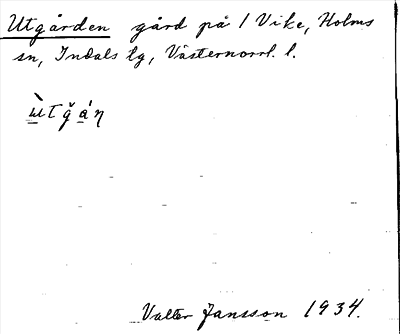 Utgården gård på 1 Vike, Holms
sn, Indals tg, Västernorrl. l.
ùtgán
Valter Jansson 1934.